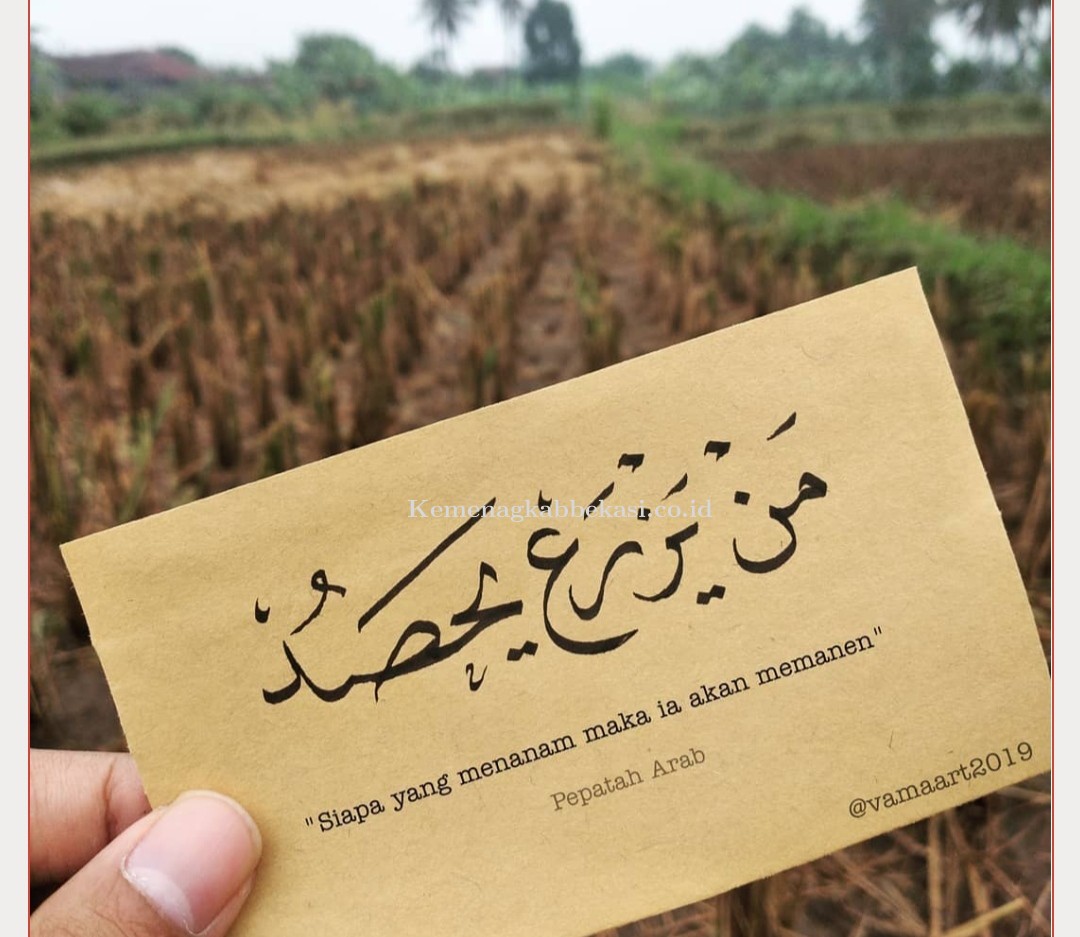 مَنْ يَزْرَعْ يَحْصُدُ
Kemenagkabbekasi.co.id
"Siapa yang menanam maka ia akan memanen"
Pepatah Arab
@vamaart2019